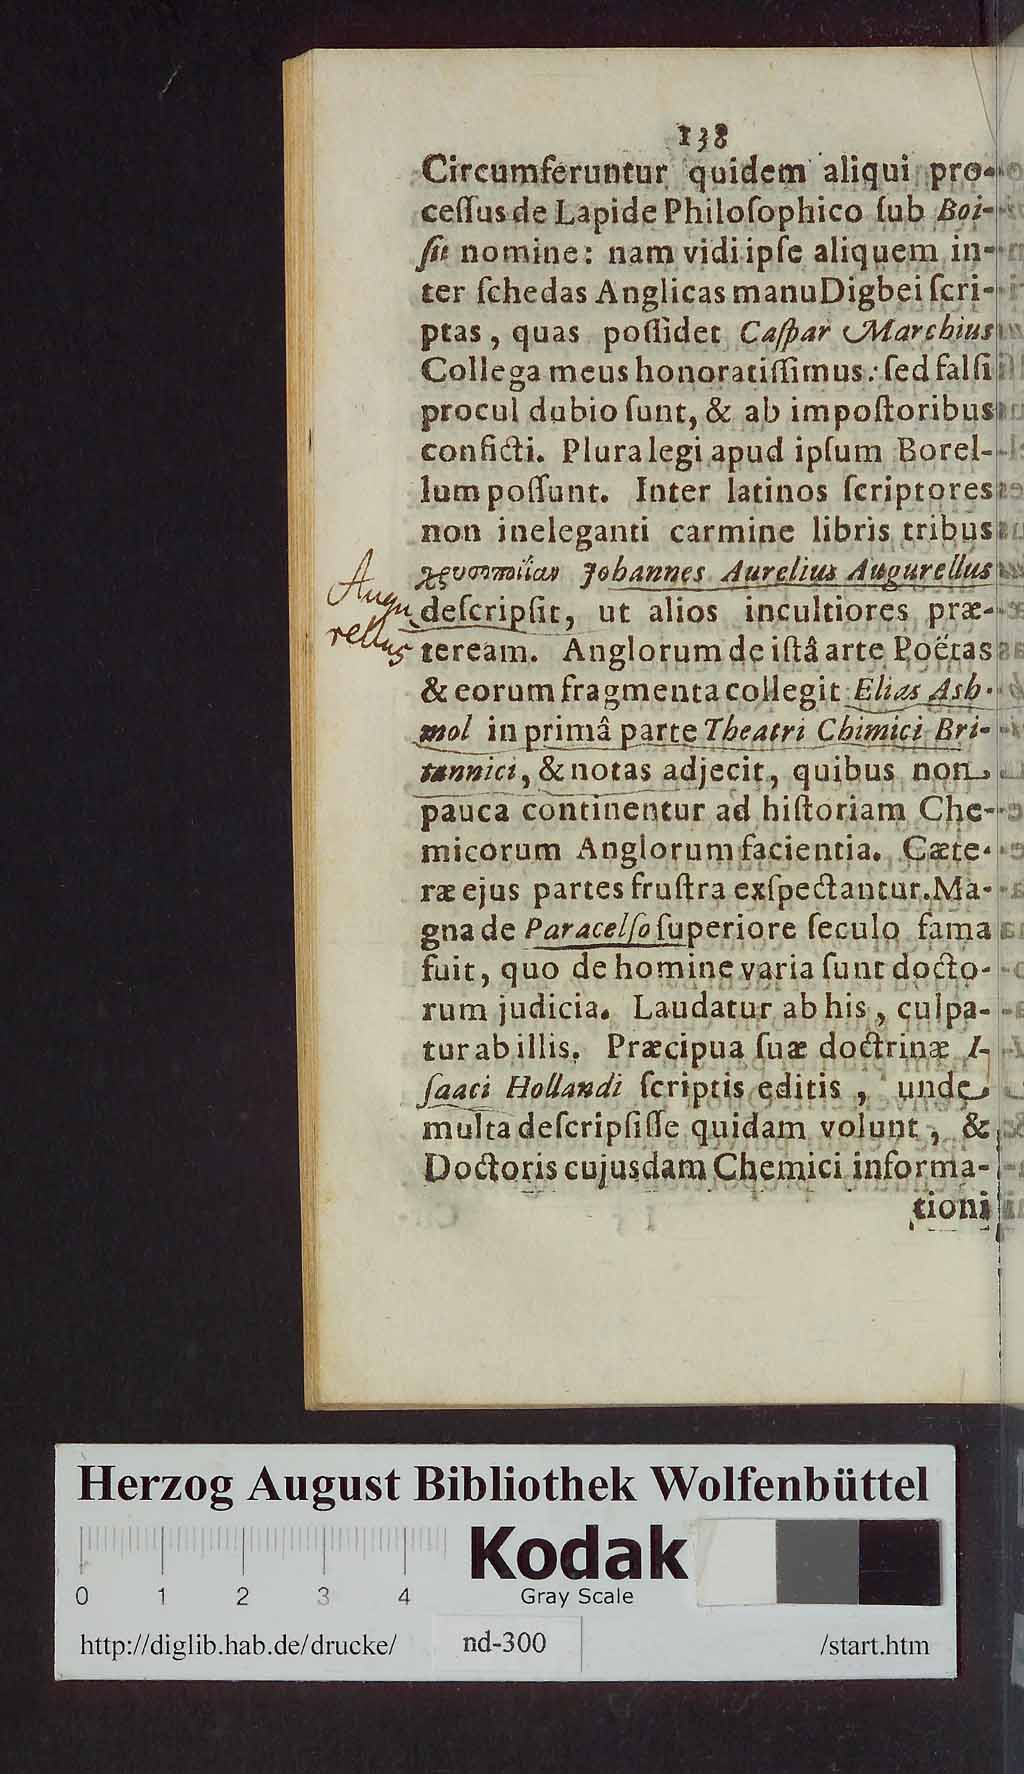 138
Circumferuntur quidem aliqui pro-
ceſſus de Lapide Philoſophico ſub Boi-
ſii nomine: nam vidi ipſe aliquem in-
ter ſchedas Anglicas manu Digbei ſcri-
ptas, quas poſſidet Caſpar Marchius
Collega meus honoratiſſimus: ſed falſi
procul dubio ſunt, & ab impoſtoribus
conficti. Plura legi apud ipſum Borel-
lum poſſunt. Inter latinos ſcriptores
non ineleganti carmine libris tribus
Johannes Aurelius Augurellus
Augu
deſcripſit, ut alios incultiores præ-
rellus
teream. Anglorum de iſtâ arte Poëtas
& eorum fragmenta collegit Elias Ash-
mol in primâ parte Theatri Chimici Bri-
tannici, & notas adjecit, quibus non
pauca continentur ad hiſtoriam Che-
micorum Anglorum facientia. Cæte-
ræ ejus partes fruſtra exſpectantur. Ma-
gna de Paracelſo ſuperiore ſeculo fama
fuit, quo de homine varia ſunt docto-
rum judicia. Laudatur ab his, culpa-
tur ab illis. Præcipua ſuæ doctrinæ I-
ſaaci Hollandi ſcriptis editis, unde
multa deſcripſiſſe quidam volunt, &
Doctoris cujusdam Chemici informa-
tioni
Herzog August Bibliothek Wolfenbüttel
Kodak
0 1 2 3 4
Gray Scale
http://diglib.hab.de/drucke/ nd-300 /start.htm